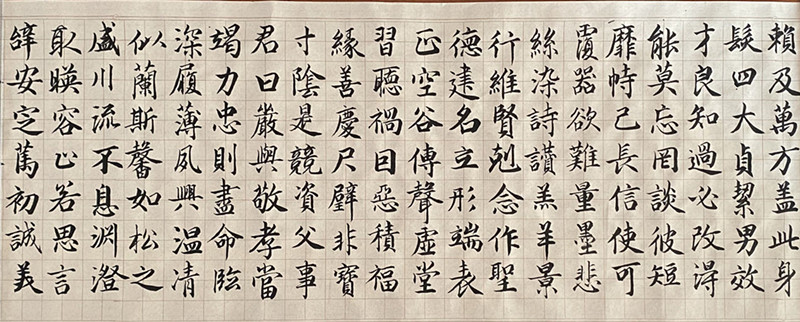 賴及萬方盖此身
髮四大貞絜男效
才良知過必改淂
能莫忘罔談彼短
靡恃己長信使可
覆器欲難量墨悲
絲染詩讚羔羊景
行維賢剋念作聖
德建名立形端表
正空谷傳聲虛堂
習聽禍因惡積福
緣善慶尺璧非寶
寸陰是競資父事
君曰嚴與敬孝當
竭力忠則盡命臨
深履薄夙興温凊
似蘭斯馨如松之
盛川流不息淵澄
取暎容止若思言
辞安定篤初誠義